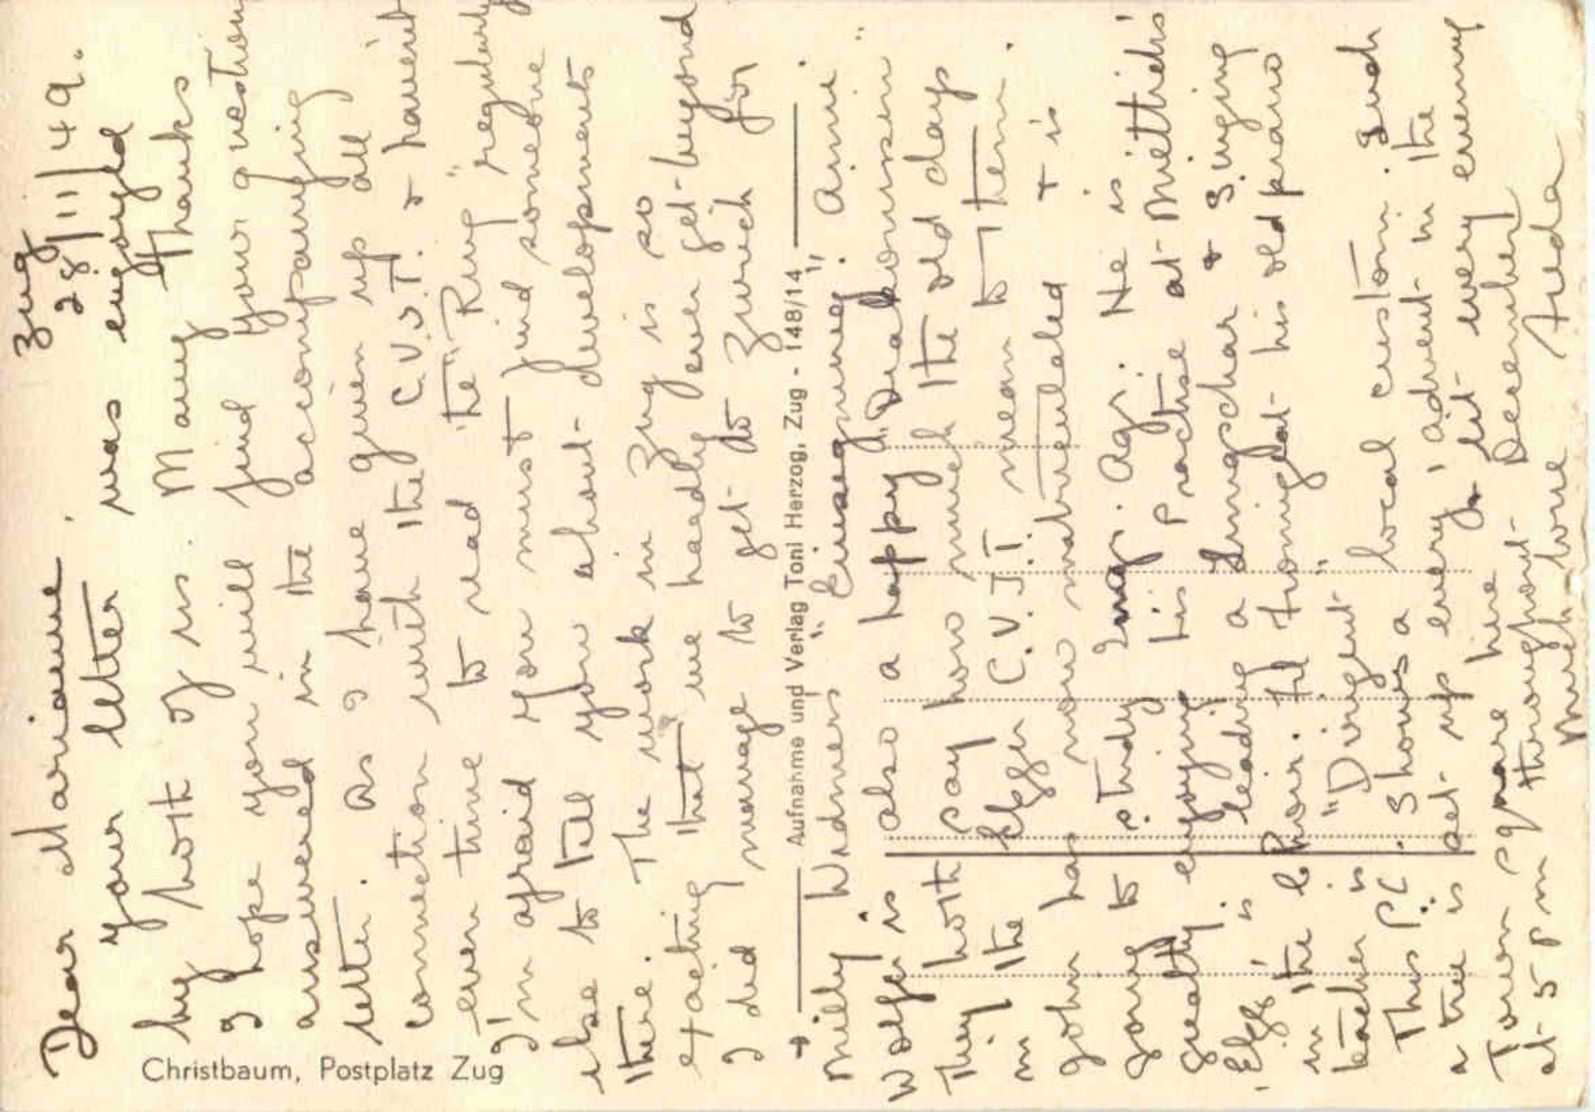 Zug
28/11/49.
Dear Marianne,
your letter was enjoyed
by both of us. Many thanks
I hope you will find your question
answered in the accompanying
letter. As I have given up all
connection with the C.V.J.T. & haven't
even time to read the "Ring" regularly
I'm afraid you must find someone
else to tell you about developments
there. The work in Zug is so
exacting that we hardly ever get beyond
I did manage to get to Zurich for
Milly Widmers "Einsegnung". Anni
Wolfer is also a happy "Diakonissin"
They both say how much the old days
in the C.V.J.T. mean to them.
John has now matriculated & is
going to study Ing. Agr. He is
greatly enjoying his practise at Mettlid's
'Egg' is leading a Jungschar & singing
in the Choir. Fl. his old piano
teacher is "Dirigent"
This P.C. shows a local custom. Such
a tree is set up every advent in the
Town square here & lit every evening
at 5 pm throughout December
Much love Freda
Christbaum, Postplatz Zug
Aufnahme und Verlag Toni Herzog, Zug - 148/14